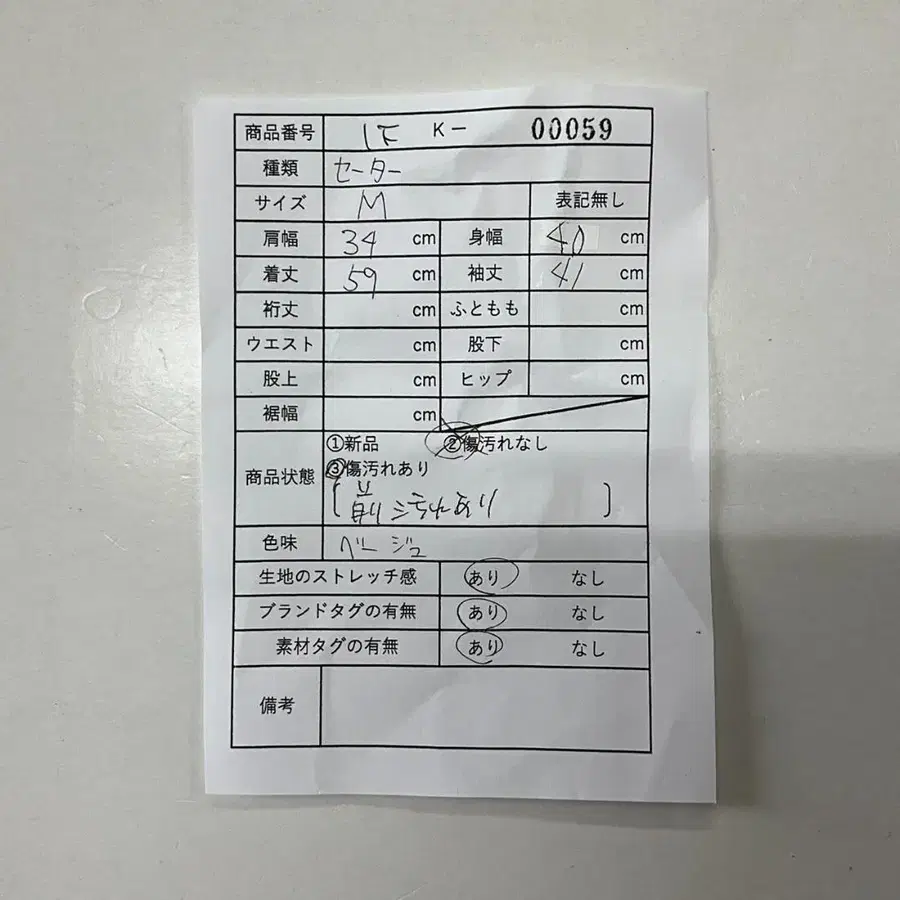 商品番号 1F K- 00059
種類 セーター
サイズ M 表記無し
肩幅 34 cm 身幅 40 cm
着丈 59 cm 袖丈 41 cm
裄丈 cm ふともも cm
ウエスト cm 股下 cm
股上 cm ヒップ cm
裾幅 cm
商品状態 ①新品 ②傷汚れなし
③傷汚れあり
( 前汚れあり )
色味 ベージュ
生地のストレッチ感 あり なし
ブランドタグの有無 あり なし
素材タグの有無 あり なし
備考